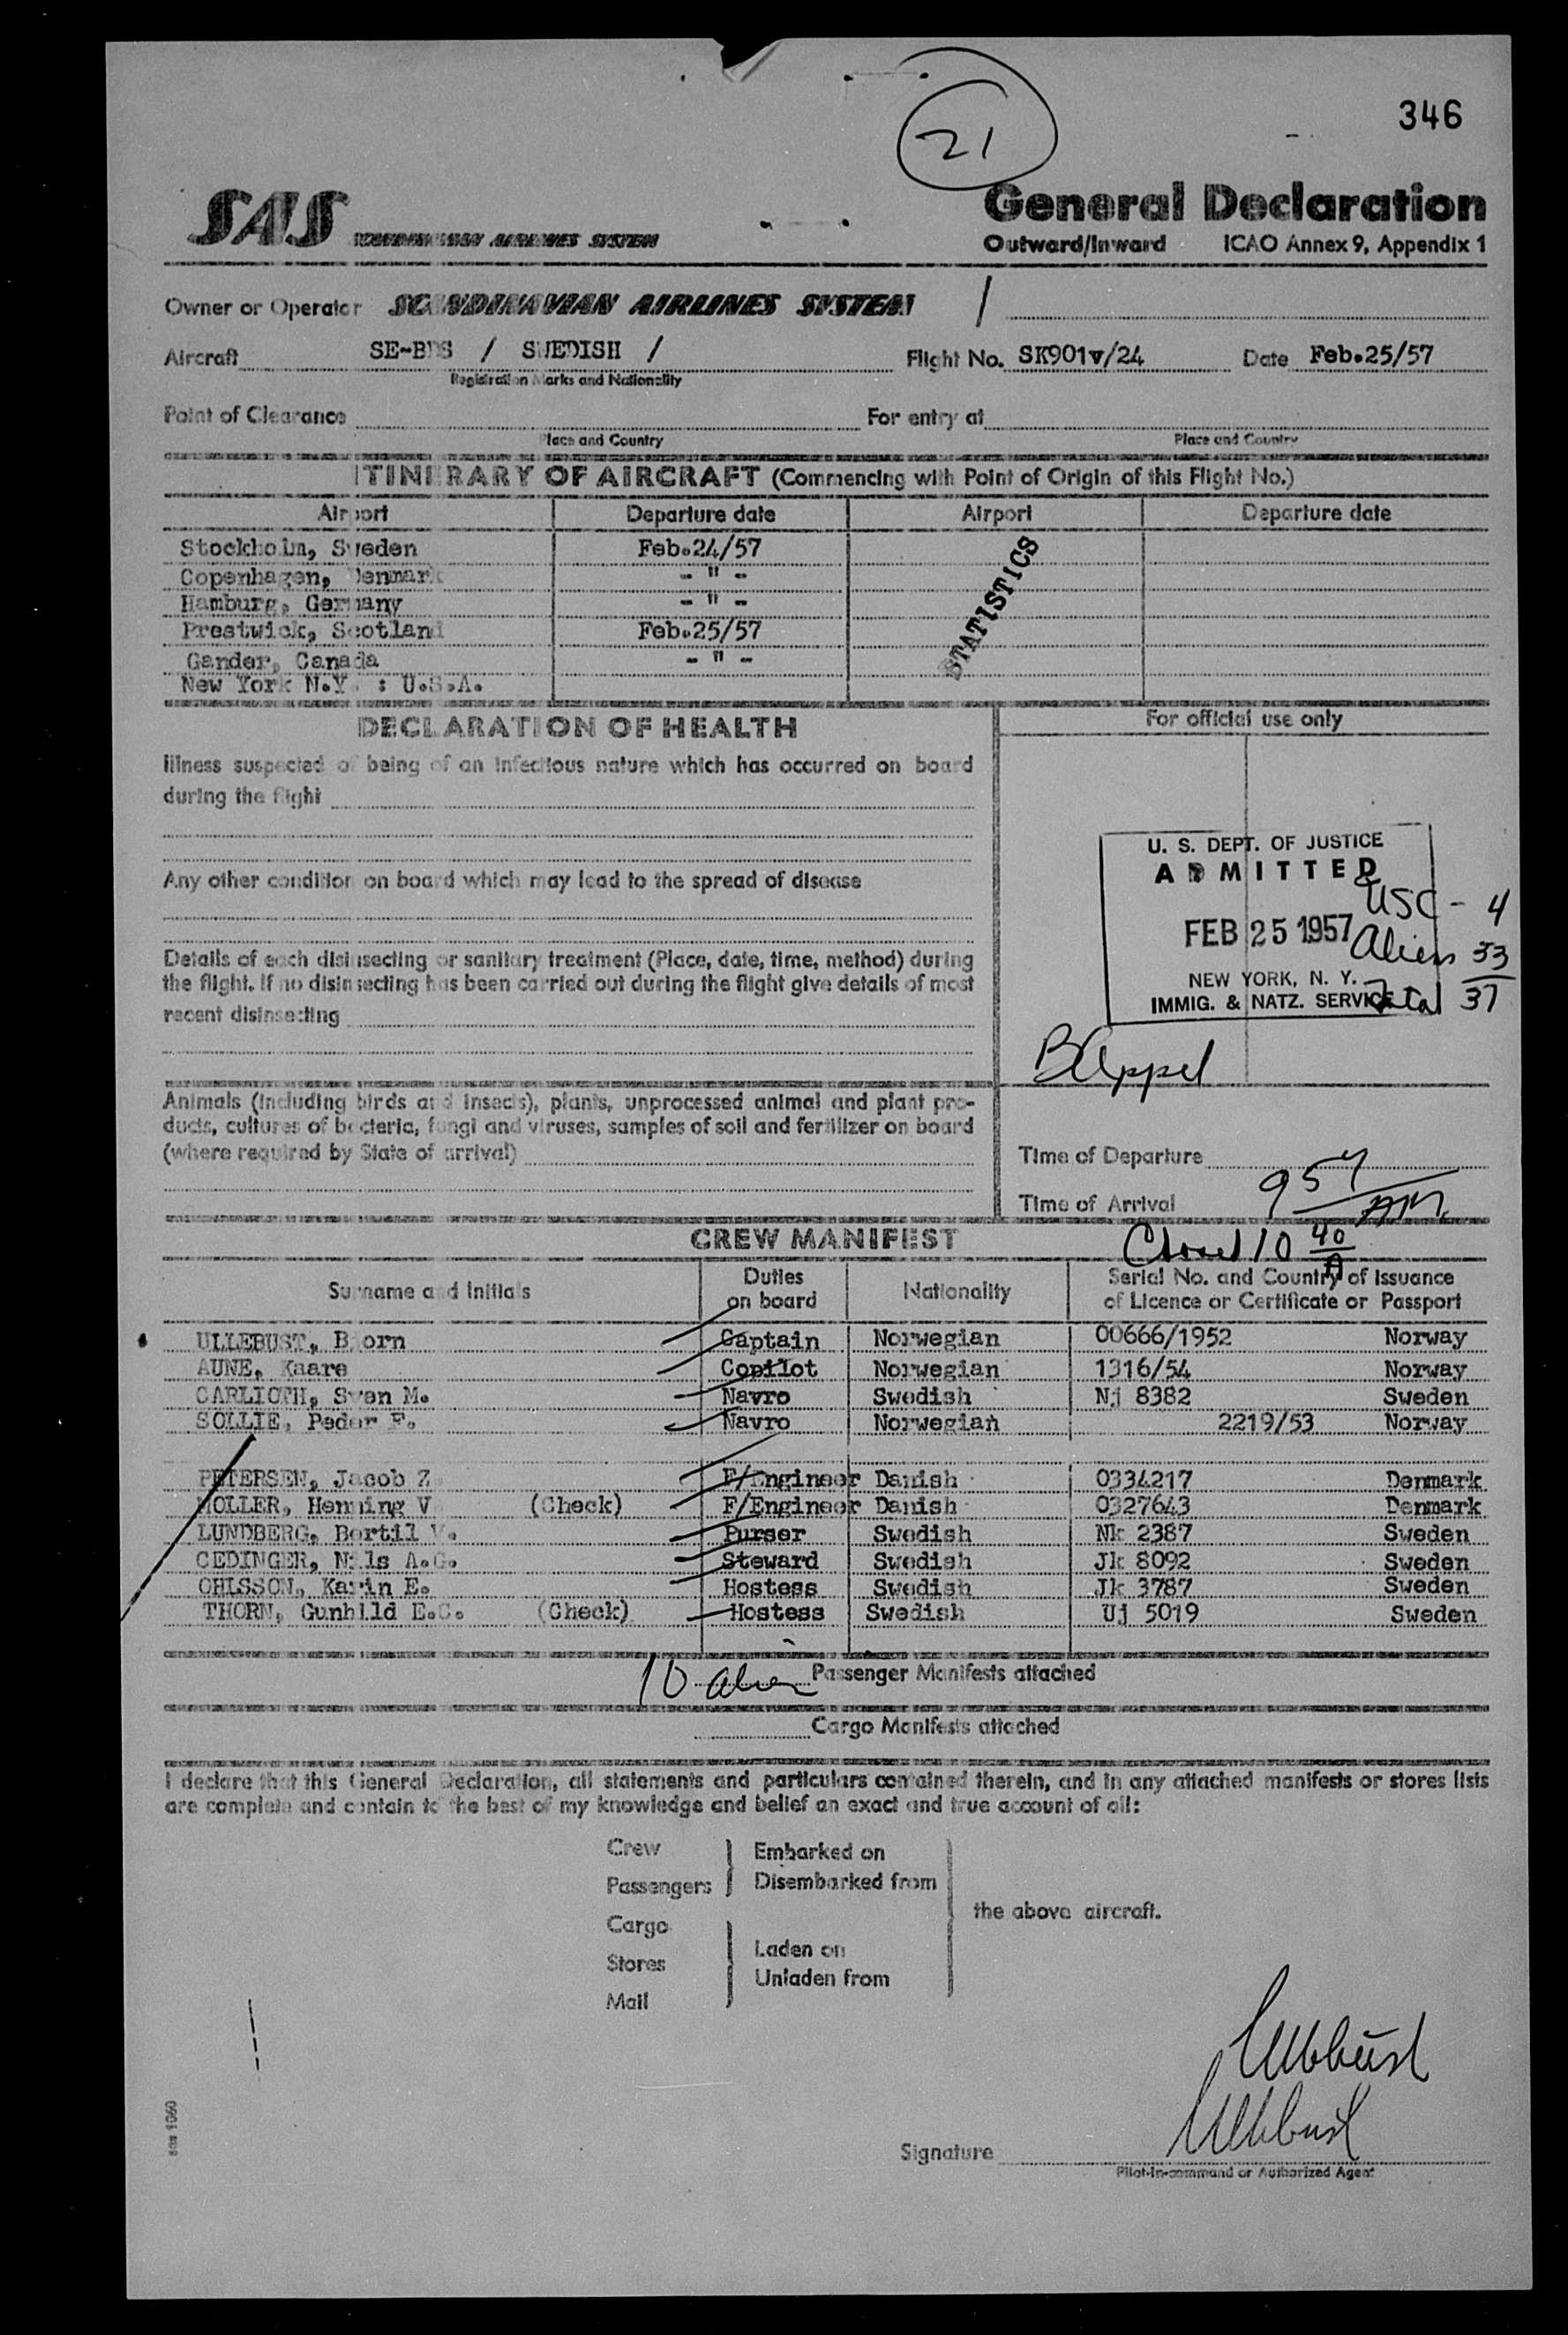 346
21
SAS SCANDINAVIAN AIRLINES SYSTEM
General Declaration
Outward/Inward ICAO Annex 9, Appendix 1
Owner or Operator SCANDINAVIAN AIRLINES SYSTEM /
Aircraft SE-BDS / SWEDISH / Flight No. SK901v/24 Date Feb.25/57
Registration Marks and Nationality
Point of Clearance For entry at
Place and Country Place and Country
ITINERARY OF AIRCRAFT (Commencing with Point of Origin of this Flight No.)
Airport Departure date Airport Departure date
Stockholm, Sweden Feb.24/57
Copenhagen, Denmark - " -
Hamburg, Germany - " -
Prestwick, Scotland Feb.25/57
Gander, Canada - " -
New York N.Y. : U.S.A.
STATISTICS
DECLARATION OF HEALTH
Illness suspected of being of an infectious nature which has occurred on board
during the flight
Any other condition on board which may lead to the spread of disease
Details of each disinsecting or sanitary treatment (Place, date, time, method) during
the flight. If no disinsecting has been carried out during the flight give details of most
recent disinsecting
Animals (including birds and insects), plants, unprocessed animal and plant pro-
ducts, cultures of bacteria, fungi and viruses, samples of soil and fertilizer on board
(where required by State of arrival)
For official use only
U. S. DEPT. OF JUSTICE
ADMITTED
FEB 25 1957
NEW YORK, N. Y.
IMMIG. & NATZ. SERVICE
USC - 4
Aliens 33
Total 37
B Appel
Time of Departure
Time of Arrival 957 AM
Closed 10 40 A
CREW MANIFEST
Surname and Initials Duties on board Nationality Serial No. and Country of Issuance of Licence or Certificate or Passport
ULLEBUST, Bjorn Captain Norwegian 00666/1952 Norway
AUNE, Kaare Copilot Norwegian 1316/54 Norway
CARLIOTH, Sven M. Navro Swedish Nj 8382 Sweden
SOLLIE, Peder F. Navro Norwegian 2219/53 Norway
PETERSEN, Jacob Z F/Engineer Danish 0334217 Denmark
MOLLER, Henning V (Check) F/Engineer Danish 0327643 Denmark
LUNDBERG, Bertil V. Purser Swedish Nk 2387 Sweden
CEDINGER, Nils A.G. Steward Swedish Jk 8092 Sweden
OHLSSON, Karin E. Hostess Swedish Jk 3787 Sweden
THORN, Gunhild E.C. (Check) Hostess Swedish Uj 5019 Sweden
10 alien Passenger Manifests attached
Cargo Manifests attached
I declare that this General Declaration, all statements and particulars contained therein, and in any attached manifests or stores lists
are complete and contain to the best of my knowledge and belief an exact and true account of all:
Crew
Passengers
Embarked on
Disembarked from
Cargo
Stores
Mail
Laden on
Unladen from
the above aircraft.
Ullebust
Ullebust
Signature
Pilot-in-command or Authorized Agent
sas 1060